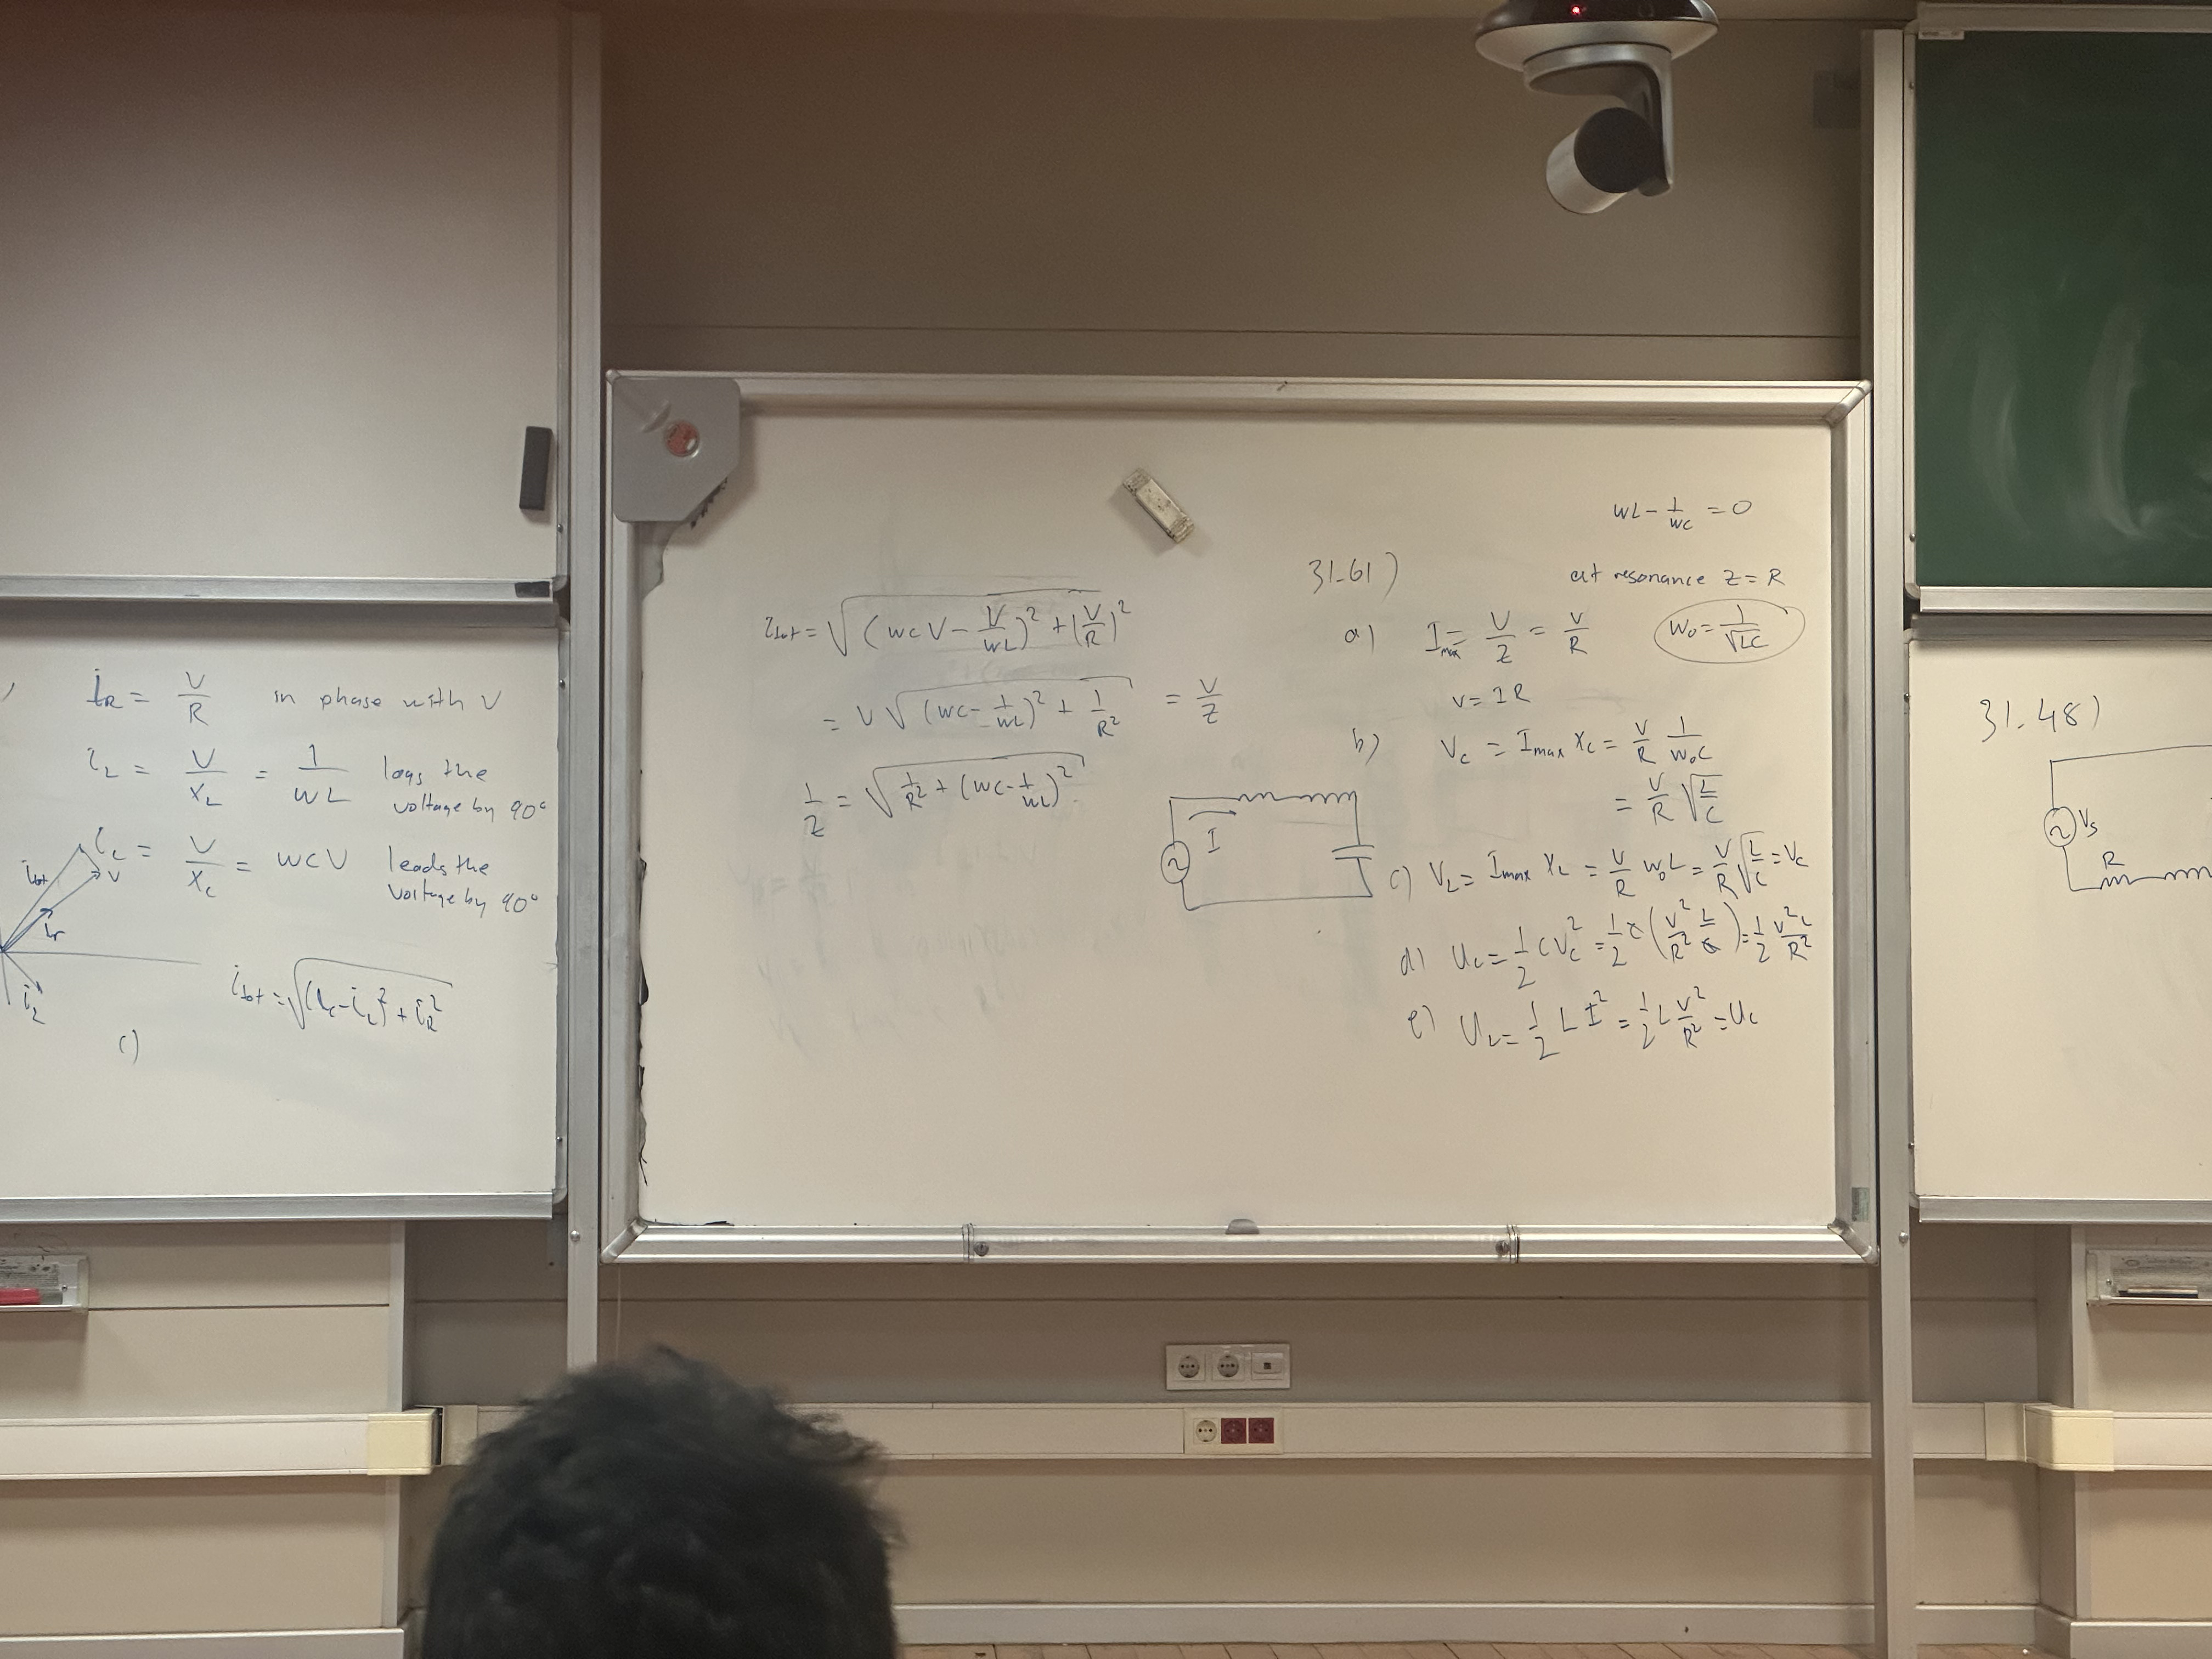 i_R = V/R in phase with V
i_L = V/X_L = 1/WL lags the voltage by 90°
i_C = V/X_C = WCV leads the voltage by 90°
i_tot
V
i_r
i_L
i_tot = √((i_C-i_L)² + i_R²)
c)
i_tot = √((WCV - V/WL)² + (V/R)²)
= V √((WC - 1/WL)² + 1/R²) = V/Z
1/Z = √(1/R² + (WC - 1/WL)²)
I
WL - 1/WC = 0
31.61)
at resonance Z = R
a) I_max = V/Z = V/R
W₀ = 1/√LC
V = IR
b) V_C = I_max X_C = V/R 1/W₀C
= V/R √(L/C)
c) V_L = I_max X_L = V/R W₀L = V/R √(L/C) = V_C
d) U_C = 1/2 C V_C² = 1/2 C (V²/R² L/C) = 1/2 V²L/R²
e) U_L = 1/2 L I² = 1/2 L V²/R² = U_C
31.48)
V_S
R